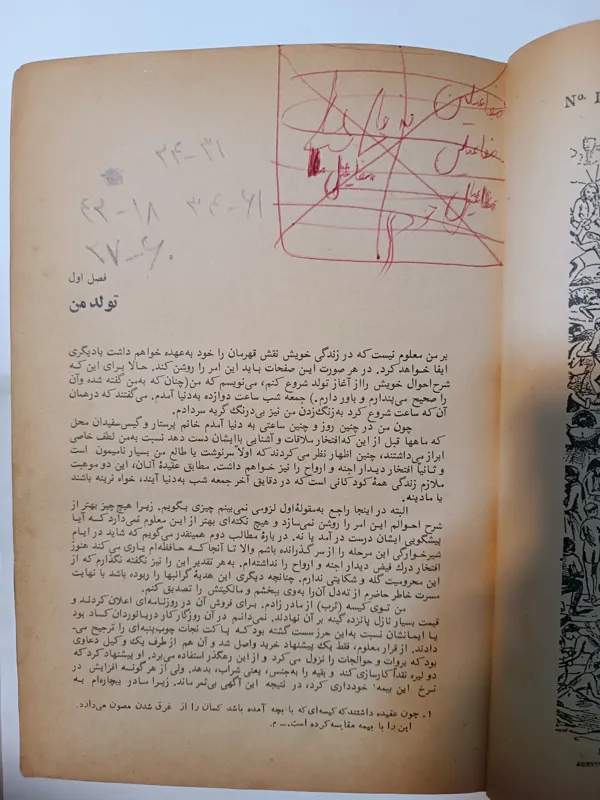 No. 1
مفاعیلن
مفاعیلن
مفاعیل
۳۱-۳۴
فصل اول
تولد من
بر من معلوم نیست که در زندگی خویش نقش قهرمان را خود به‌عهده خواهم داشت یادیگری
ایفا خواهد کرد. در هر صورت این صفحات باید این امر را روشن کند. حالا برای این که
شرح احوال خویش رااز آغاز تولد شروع کنم، می‌نویسم که من (چنان که به‌من گفته شده وآن
را صحیح می‌پندارم و باور دارم.) جمعه شب ساعت دوازده به‌دنیا آمدم. می‌گفتند که درهمان
آن که ساعت شروع کرد به‌زنگ‌زدن من نیز بی‌درنگ گریه سردادم.
چون من در چنین روز و چنین ساعتی به دنیا آمدم خانم پرستار و گیس‌سفیدان محل
که ماهها قبل از این که افتخار ملاقات و آشنایی باایشان دست دهد نسبت به‌من لطف خاصی
ابراز می‌داشتند، چنین اظهار نظر می‌کردند که اولاً سرنوشت یا طالع من بسیار نامیمون است
و ثانیاً افتخار دیدار اجنه و ارواح را نیز خواهم داشت. مطابق عقیدهٔ آنان، این دو موهبت
ملازم زندگی همهٔ کودکانی است که در دقایق آخر جمعه شب به‌دنیا آیند، خواه نرینه باشند
یا مادینه.
البته در اینجا راجع به مقولهٔ اول لزومی نمی‌بینم چیزی بگویم. زیرا هیچ چیز بهتر از
شرح احوالم این امر را روشن نمی‌سازد و هیچ نکته‌ای بهتر از این معلوم نمی‌دارد که آیا
پیشگویی ایشان درست در آمد یا نه. در بارهٔ مطالب دوم همینقدر می‌گویم که شاید در ایام
شیرخوارگی این مرحله را سر گذرانده باشم والا تا آنجا که حافظه‌ام یاری می‌کند هنوز
افتخار درك فیض دیدار اجنه و ارواح را نداشته‌ام. به‌هر تقدیر این را نیز نگفته نگذارم که از
این محرومیت گله و شکایتی ندارم. چنانچه دیگری این هدیهٔ گرانبها را ربوده باشد با نهایت
مسرت خاطر حاضرم از ته‌دل آن را به‌وی ببخشم و مالکیتش را تصدیق کنم.
من توی کیسه (ترب) از مادر زادم. برای فروش آن در روزنامه‌ای اعلان کردند و
قیمت بسیار نازل پانزده گینه بر آن نهادند. نمی‌دانم در آن روزگار کار دریانوردان کساد بود
یا ایمانشان نسبت به‌این حرز سست گشته بود که پاکت نجات چوب‌پنبه‌ای را ترجیح می‌-
دادند. از قرار معلوم، فقط یک پیشنهاد خرید واصل شد و آن هم از طرف یک وکیل دعاوی
بود که بروات و حوالجات را نزول می‌کرد و از این رهگذر استفاده می‌برد. او پیشنهاد کرد که
دو لیره نقداً کارسازی کند و بقیه را به‌جنس، یعنی شراب، بدهد. ولی از هر گونه افزایش در
نرخ این بیمه۱ خودداری کرد، در نتیجه این آگهی بی‌ثمر ماند. زیرا مادر بیچاره‌ام به
۱. چون عقیده داشتند که کیسه‌ای که با بچه آمده باشد کسان را از غرق شدن مصون می‌دارد.
این را با بیمه مقایسه کرده است.ــ م.